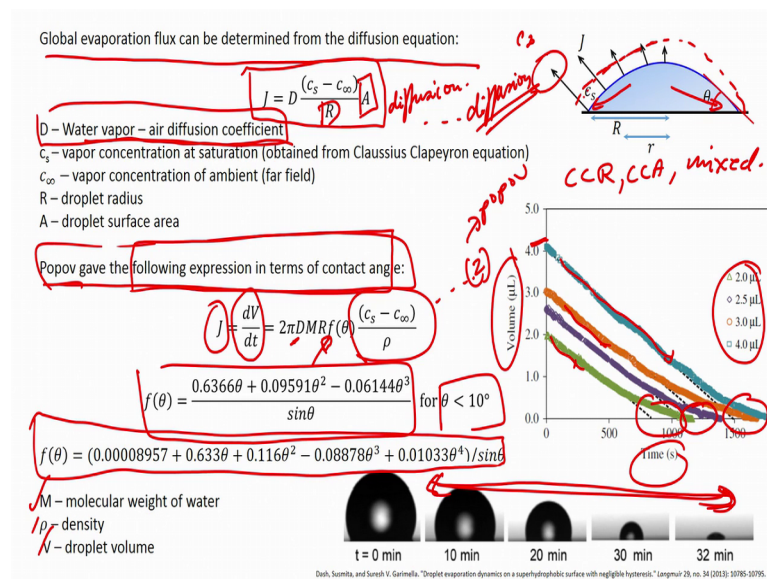 Global evaporation flux can be determined from the diffusion equation:
J = D (c_s − c_∞)/R A
diffusion.
... diffusion
c_s
J
c_s
θ
R
r
D – Water vapor – air diffusion coefficient
c_s – vapor concentration at saturation (obtained from Claussius Clapeyron equation)
c_∞ – vapor concentration of ambient (far field)
R – droplet radius
A – droplet surface area
CCR, CCA, mixed.
→ popov
(2)
Popov gave the following expression in terms of contact angle:
J = dV/dt = 2πDMRf(θ) (c_s − c_∞)/ρ
f(θ) = (0.6366θ + 0.09591θ² − 0.06144θ³)/sinθ for θ < 10°
f(θ) = (0.00008957 + 0.633θ + 0.116θ² − 0.08878θ³ + 0.01033θ⁴)/sinθ
M – molecular weight of water
ρ – density
V – droplet volume
5.0
4.0
3.0
2.0
1.0
0.0
Volume (µL)
0
500
1000
1500
Time (s)
2.0 µL
2.5 µL
3.0 µL
4.0 µL
t = 0 min
10 min
20 min
30 min
32 min
Dash, Susmita, and Suresh V. Garimella. "Droplet evaporation dynamics on a superhydrophobic surface with negligible hysteresis." Langmuir 29, no. 34 (2013): 10785-10795.